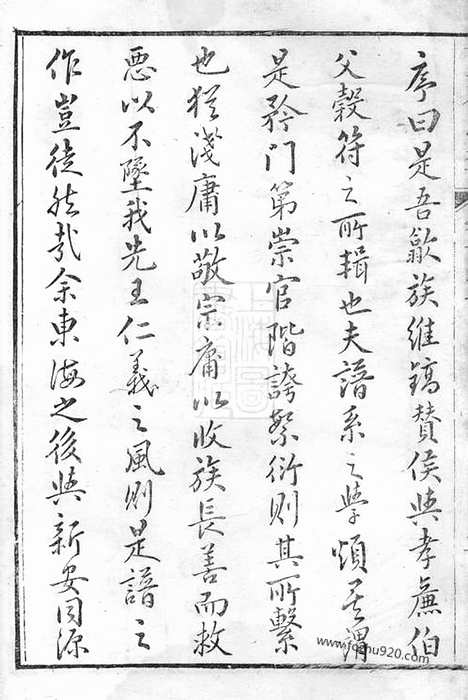 序曰是吾歙族維鎬贊侯與孝廉伯
父穀符之所輯也夫譜系之學謂
是矜門第崇官階誇繁衍則其所繫
也猶淺庸以敬宗庸以收族長善而救
惡以不墜我先王仁義之風則是譜之
作豈徒然哉余東海之後與新安同源